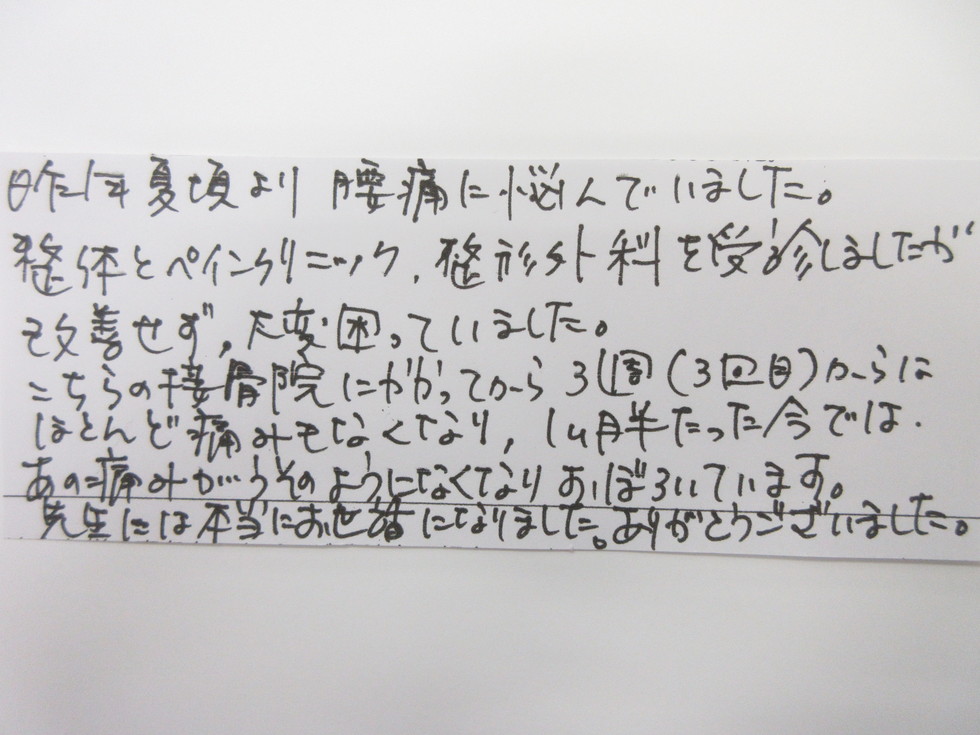 昨年夏頃より腰痛に悩んでいました。
整体とペインクリニック、整形外科を受診しましたが
改善せず、大変困っていました。
こちらの接骨院にかかってから3週(3回目)からは
ほとんど痛みもなくなり、1ヶ月半たった今では、
あの痛みがうそのようになくなりおどろいています。
先生には本当にお世話になりました。ありがとうございました。